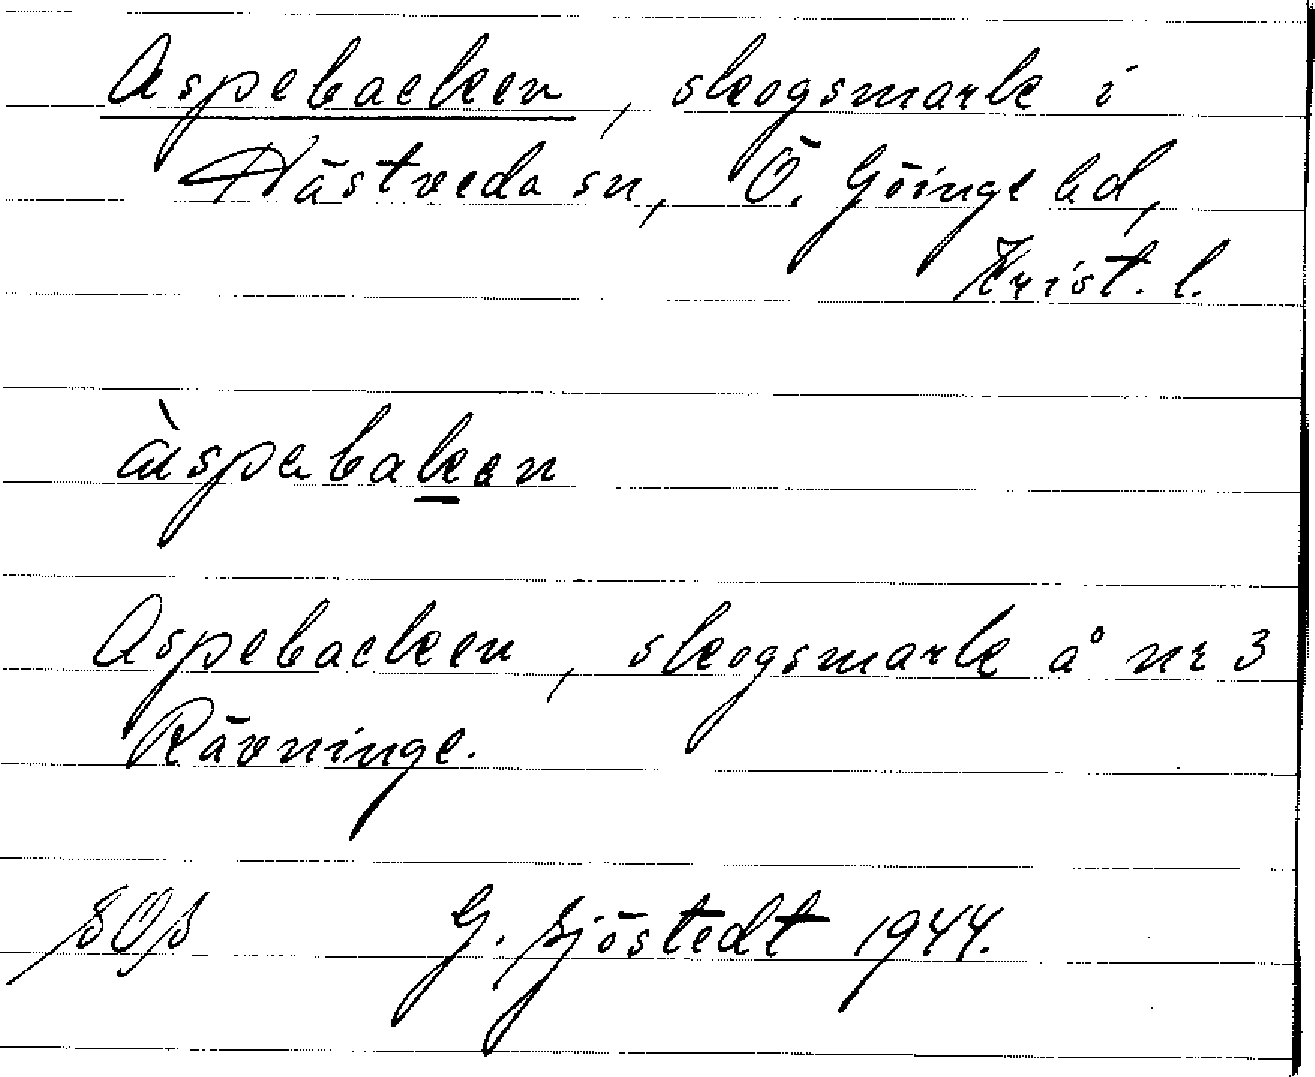 Aspebacken, skogsmark i
Hästveda sn, Ö. Göinge hd,
Krist. l.
àspebaken
Aspebacken, skogsmark å nr 3
Rävninge.
SOS G. Sjöstedt 1944.